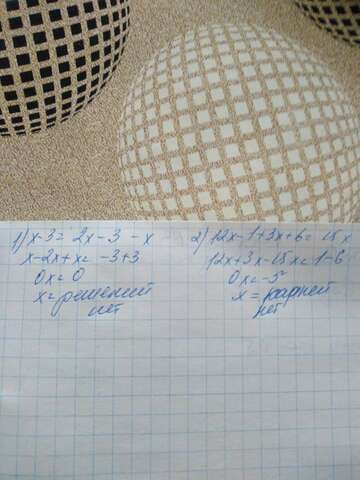 1) x-3= 2x-3 -x
x-2x+x= -3+3
0x=0
x=решений
нет
2) 12x-1+3x+6= 15x
12x+3x-15x=1-6
0x=-5
x = корней
нет